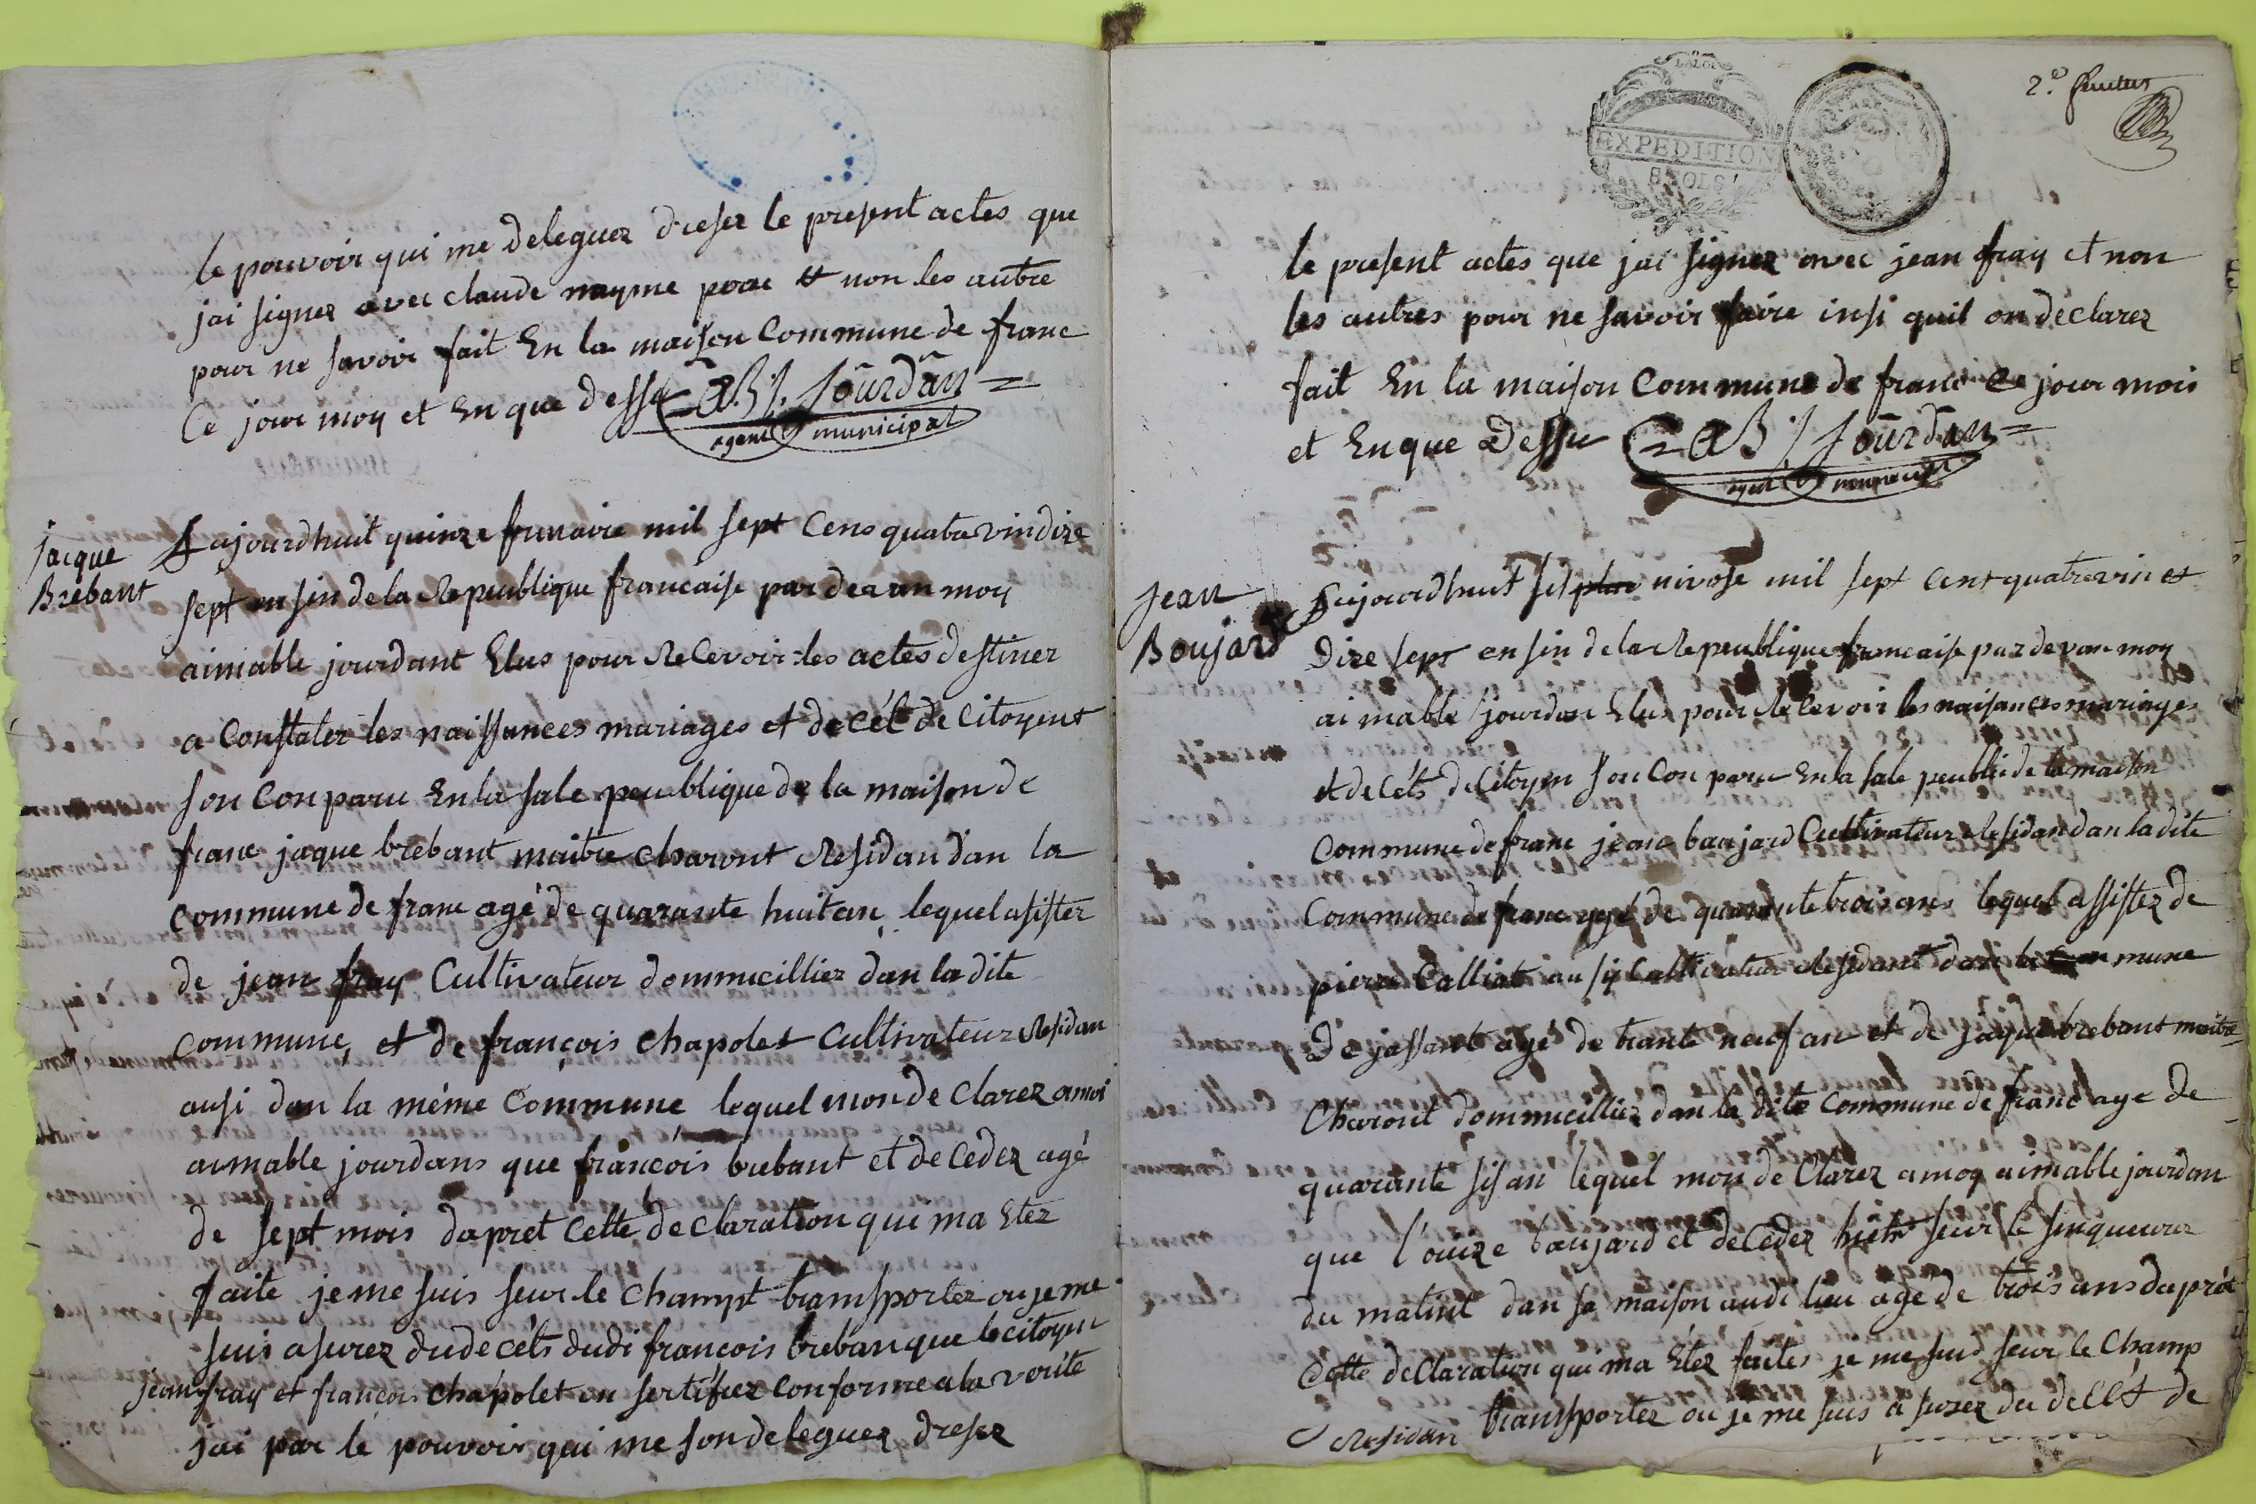 le pouvoir qui me deleguez dreser le present actes que
jai signez avec claude mayme poar et non les autre
pour ne savoir fait En la maison Commune de franc
Ce jour moy et En que dessu =AB J. Jourdan=
agent municipal
jacque
Brebant
Aujourdhuit quinze frimaire mil sept Cens quatre vindize
sept en sin de la Republique francaise par devan moy
aimable jourdant Elus pour Recevoir les actes destiner
a Constater les naissances mariages et decét de Citoyent
son Conparu En la sale peublique de la maison de
franc jaque brebant maitre charont Residan dan la
Commune de franc agé de quarante huit an lequel asister
de jean fray Cultivateur dommicillier dan la dite
Commune, et de françois chapolet Cultivateur Residan
ausi dan la méme Commune lequel mon de Clarez a moi
aimable jourdans que françois brebant et de Cedez agé
de sept mois dapret Cette de Claration qui ma Etez
faite je me suis seur le Champt transportez ou je me
suis asurez du decéts dudi francois breban que le citoyen
jean fray et francois chapolet on sertifiez Conforme a la verite
jai par le pouvoir qui me son deleguez dreser
LA LOI
EXPEDITION
8 SOLS
2e feuillet
le present actes que jai signez avec jean fray et non
les autres pour ne savoir faire insi quil on declarez
fait En la maison Commune de franc Ce jour mois
et En que Dessu =AB J Jourdan=
agent municipal
Jean
Boujard
Aujourdhuit sis nivose mil sept Cent quatre vin et
Dize sept en sin de la Republique francaise par devan moy
aimable jourdan Elus pour Recevoir les naisances mariages
et deCéts de Citoyen son Conparu En la sale peublic de la maison
Commune de franc jean baujard Cultivateur Residan dan la dite
Commune de franc agé de quarante trois ans lequel assistez de
pierre Calliat au sy Cultivateur Residant dan la Commune
De jassant agé de trante neuf an et de jaque brebant maitre
Charont dommicilliez dan la dite Commune de franc age de
quarante sis an lequel mon de Clarez a moy aimable jourdan
que l'ouize baujard et deCedez hiéh seur le sinqueure
du matint dan sa maison audi lieu agé de trois ans daprét
Cette deClaration qui ma Etez faites je me suis seur le Champ
Residan transportez ou je me suis a surez du deCét de